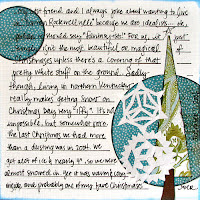 best friend and I always joke about wanting to live
in "Norman Rockwell-ville" because we are idealists... the
should say "fantasy-ists!" For us, it "just"
isn't the most beautiful or magical of
Christmases unless there's a covering of that
pretty white stuff on the ground. Sadly
though, living in northern Kentucky
really makes getting "snow" on
Christmas day very "iffy". It's not
impossible, but somewhat rare.
The last Christmas we had more
than a dusting was in 2004. We
got a lot of it & nearly so we were
almost snowed in. Yet it was warm, cozy
inside and probably one of my fave Christmases.